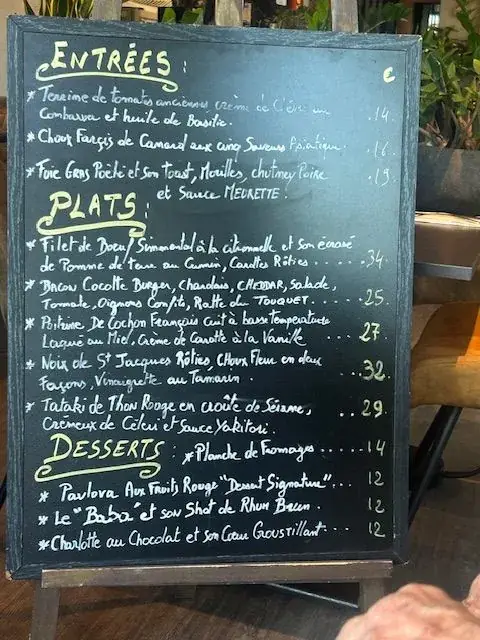 ENTRÉES :
€
* Terrine de tomates anciennes crème de Céleri au
Combawa et huile de Basilic. .14.
* Choux Farcis de Canard aux cinq Saveurs Asiatique. .16.
* Foie Gras Poêlé et son Toast, Morilles, chutney Poire .19.
et Sauce MEURETTE.
PLATS :
* Filet de Boeuf Simmental à la citronnelle et son écrasé
de Pomme de terre au Cumin, Carottes Rôties ...... 34
* BACON Cocotte Burger, charolais, CHEDDAR, Salade,
Tomate, Oignons Confits, Ratte du TOUQUET ...... 25
* Poitrine De Cochon Français cuit à basse température
Laqué au Miel, Crème de Carotte à la Vanille ... 27
* Noix de St Jacques Rôties, CHoux Fleur en deux
Façons, Vinaigrette au Tamarin. ... 32
* Tataki de Thon Rouge en croûte de Sésame,
Crémeux de Céleri et Sauce Yakitori. .. 29
DESSERTS : * Planche de Fromages ..... 14
* Pavlova Aux Fruits Rouge "Dessert Signature"... 12
* Le "Baba" et son Shot de Rhum Brun. 12
* Charlotte au Chocolat et son Cœur GrousTillant... 12